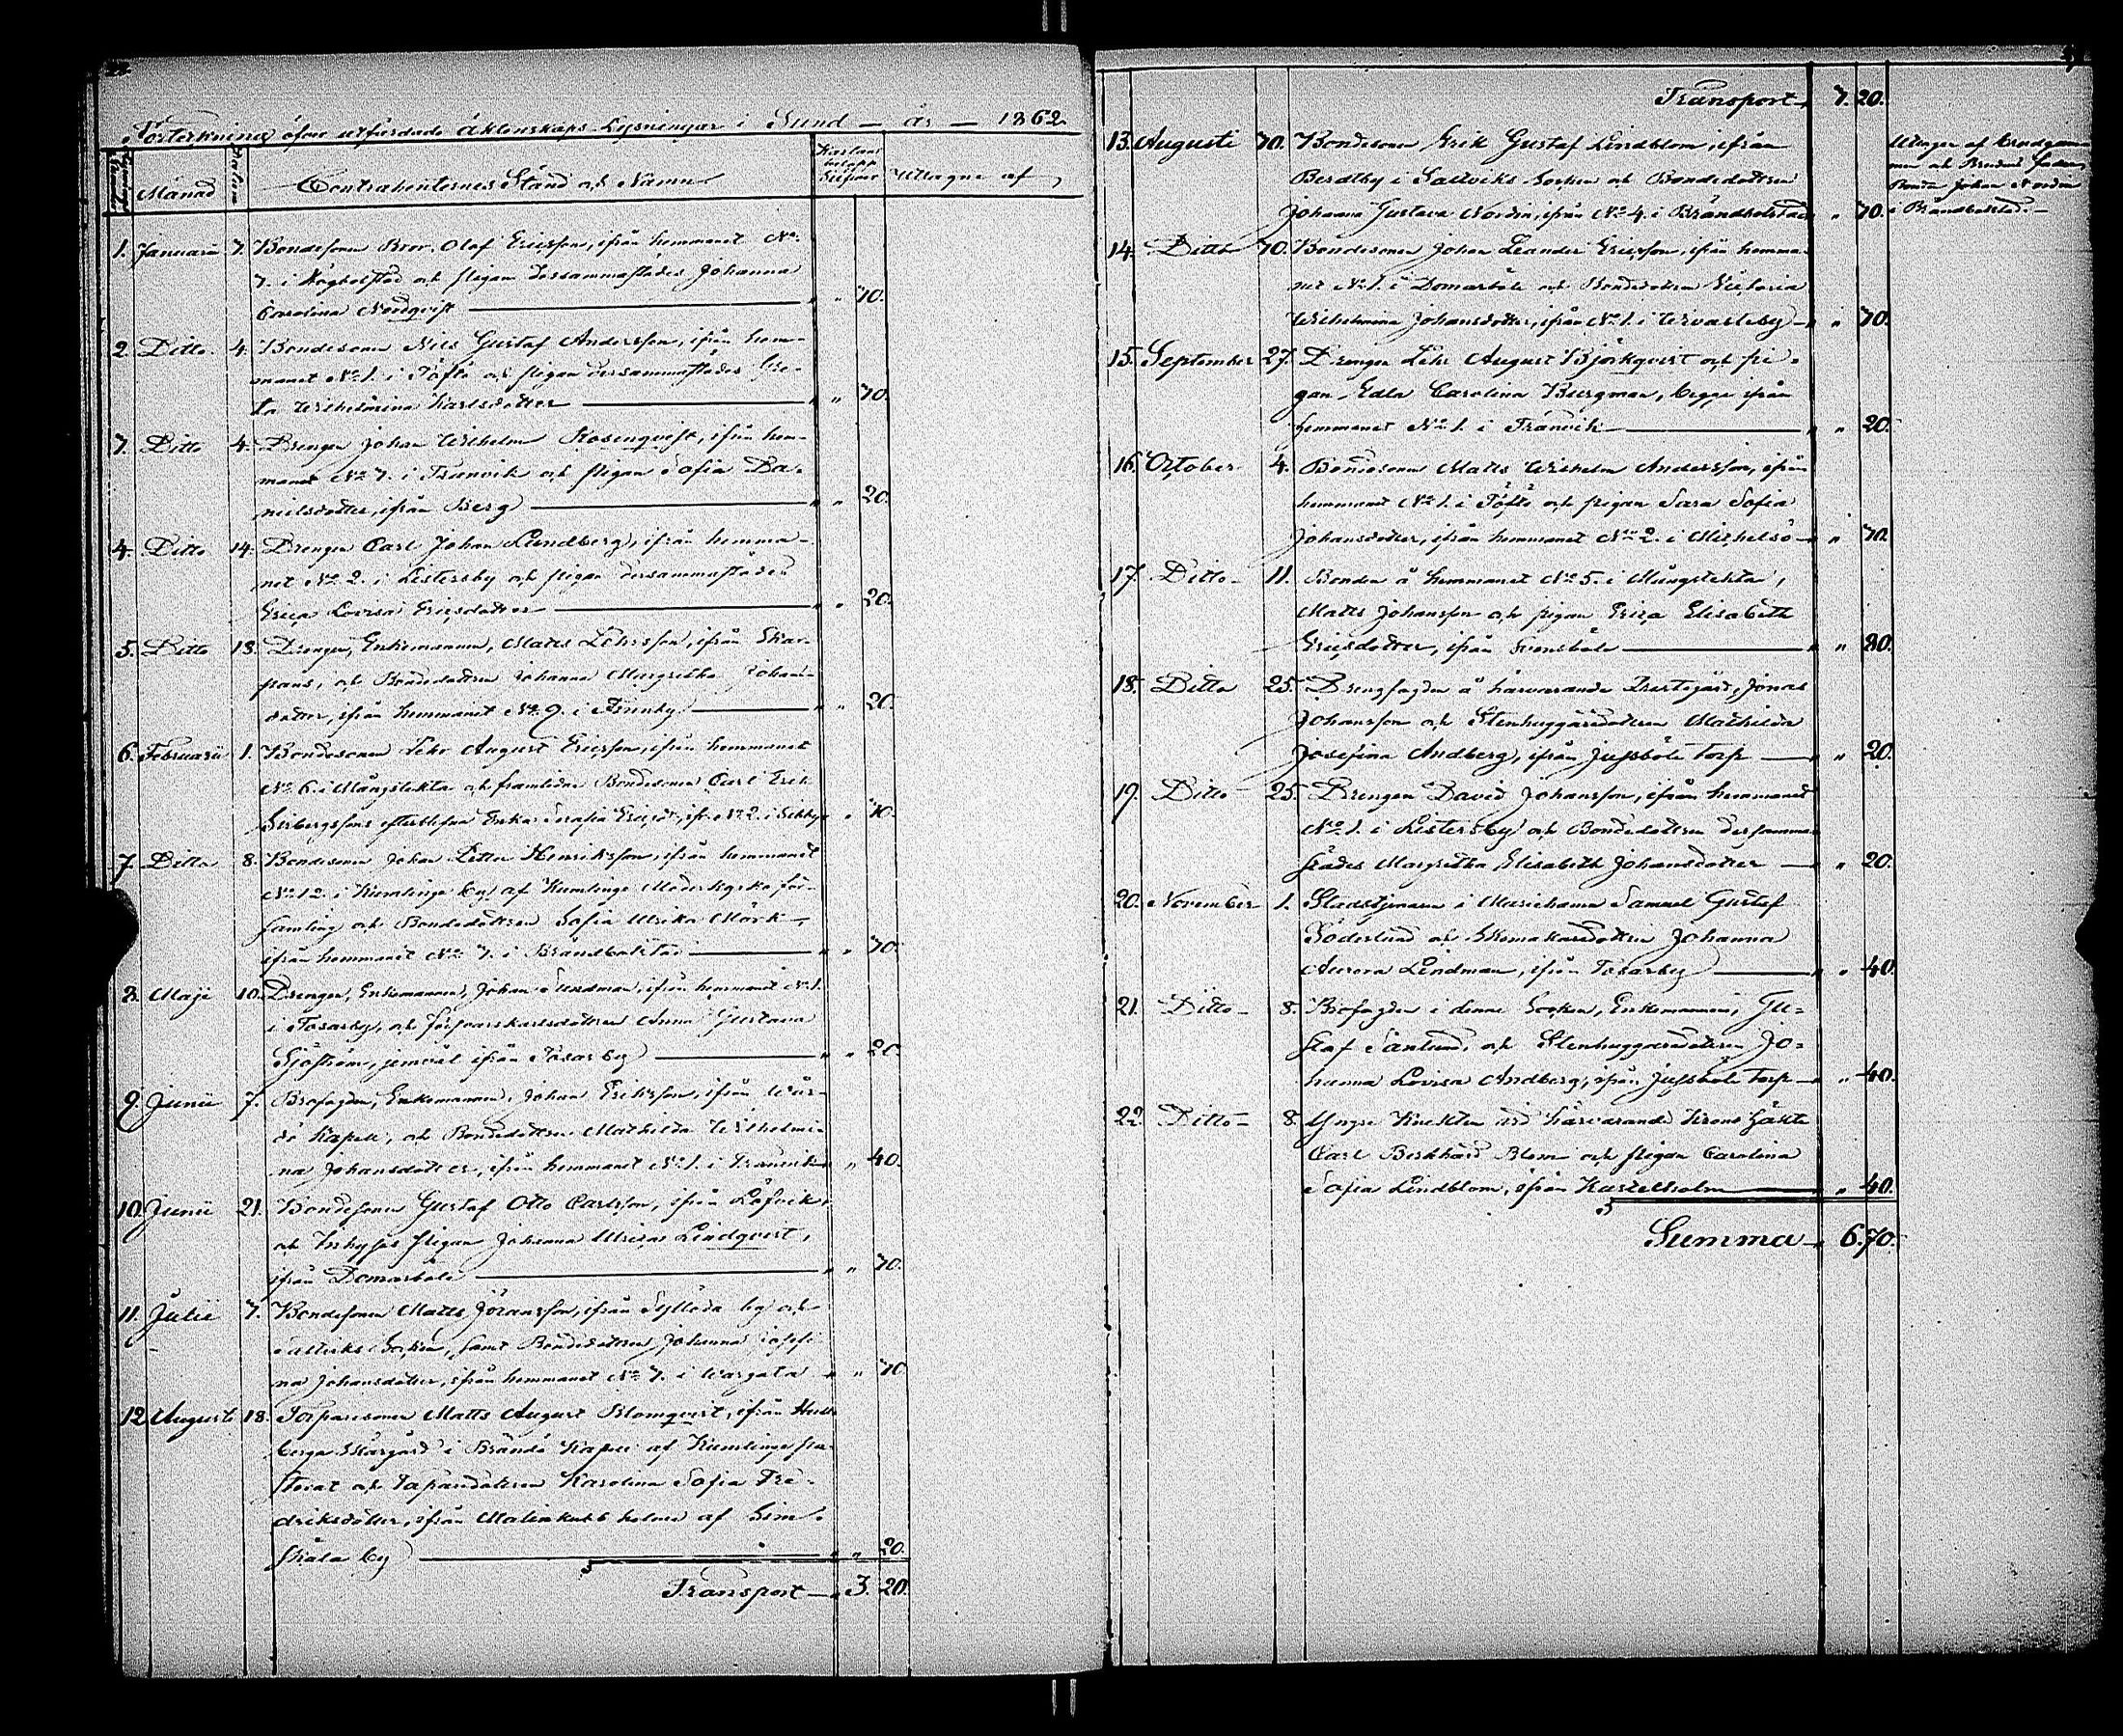 Förteckning öfver utfärdade äktenskaps Lysningar i Sund — år — 1862
Månad Contrahenternes Stånd och Namn Uttagne af
1. Januarii 7. Bondesonen Bror Olof Ericsson, ifrån hemmanet No
7. i Högbolstad och pigan dersammastädes Johanna
Carolina Nordqvist — „ 70.
2. Ditto. 4. Bondesonen Nils Gustaf Andersson, ifrån hem-
manet No 1. i Töftö och pigan dersammastädes Gre-
ta Wilhelmina Karlsdotter — „ 70.
Ditto 4. Drengen Johan Wilhelm Rosenqvist, ifrån hem-
manet No 7. i Tranvik och pigan Sofia Da-
nielsdotter, ifrån Berg — „ 20.
4. Ditto 14. Drengen Carl Johan Lundberg, ifrån hemma-
net No 2. i Listersby och pigan dersammastädes
Erica Lovisa Ericsdotter — „ 20.
5. Ditto 18. Drengen, Enkemannen, Matts Lehrsson, ifrån Skar-
pans, och Bondedottren Johanna Margretha Johans-
dotter, ifrån hemmanet No 9. i Finnby — „ 20.
6. Februarii 1. Bondesonen Lehr August Ericsson, ifrån hemmanet
No 6. i Mångstekta och framlidne Bondesonen Carl Erik
efterlefvan Enkan Serafia Ericsdr, ifr. No 2. i „ 70.
7. Ditto 8. Bondesonen Johan Petter Henriksson, ifrån hemmanet
No 12. i Kumlinge by af Kumlinge Moderkyrko för-
samling och Bondedottren Sofia Ulrika Mörk,
ifrån hemmanet No 7. i Brändbolstad — „ 70.
8. Maji 10. Drengen, Enkemannen, Johan Sundman, ifrån hemmanet No 1.
i Tosarby, och försvarskarlsdottren Anna Gustava
Sjöström, jemväl ifrån Tosarby — „ 20.
9. Junii 7. Brofogden, Enkemannen, Johan Eriksson, ifrån Wår-
dö Kapell, och Bondedottren Mathilda Wilhelmi-
na Johansdotter, ifrån hemmanet No 1. i Tranvik — „ 40.
10. Junii 21. Bondesonen Gustaf Otto Carlsson, ifrån Löfvik,
och Inhyses pigan Johanna Ulrica Lindqvist,
ifrån Domarböle — „ 70.
11. Julii 7. Bondesonen Matts Jöransson, ifrån by och
Saltviks Socken, samt Bondedottren Johanna
na Johansdotter, ifrån hemmanet No 7. i Wargata — „ 70
12. Augusti 18. Torparesonen Matts August Blomqvist, ifrån
berga Skärgård i Brändö Kapell af Kumlinge pa-
storat och Karolina Sofia Fre-
driksdotter, ifrån holmen af Sim-
skäla by — „ 20.
Transport — 20.
Transport — 7. 20.
13. Augusti 70. Bondesonen Erik Gustaf Lindblom ifrån
Bertby i Saltviks Socken och Bondedottren
Johanna Gustava Nordin, ifrån No 4. i Brändbolstad „ 70.
Uttagen af
men och Brudens fader,
Bonden Johan Nordin
i Brändbolstad. —
14. Ditto 70. Bondesonen Johan Leander Ericsson, ifrån hemma-
net No 1. i Domarböle och Bondedottren Victoria
Wilhelmina Johansdotter, ifrån No 1. i Wivasteby — „ 70.
15. September 27. Drengen Lehr August Björkqvist och pi-
gan Edla Carolina Bergman, begge ifrån
hemmanet No 1. i Tranvik — „ 20.
16. October 4. Bondesonen Matts Wilhelm Andersson, ifrån
hemmanet No 1. i Töftö och pigan Sara Sofia
Johansdotter, ifrån hemmanet No 2. i Mickelsö — „ 70.
17. Ditto — 11. Bonden å hemmanet No 5. i Mångstekta,
Matts Johansson och pigan Erica Elisabeth
Ericsdotter, ifrån Svensböle — „ 80.
18. Ditto 25. Drengfogden å härvarande Prestegård, Jonas
Johansson och Stenhuggaredottren Mathilda
Josefina Andberg, ifrån Jussböle torp — „ 20.
19. Ditto 25. Drengen David Johansson, ifrån hemmanet
No 1. i Listersby och Bondedottren dersamma-
städes Margretha Elisabeth Johansdotter — „ 20.
20. November 1. Stadstjenaren i Mariehamn Samuel Gustaf
Söderlund och Skomakaredottren Johanna
Aurora Lindman, ifrån Tosarby — „ 40.
21. Ditto — 8. Brofogden i denne Socken, Enkemannen, Gu-
staf Sanlund, och Stenhuggaredottren Jo-
hanna Lovisa Andberg, ifrån Jussböle torp — „ 40.
22. Ditto — 8. Yngre Knekten vid härvarande Krono Häkte
Carl Berkhard Blom och pigan Carolina
Sofia Lindblom, ifrån Kastelholm — „ 40.
Summa — 6.70.